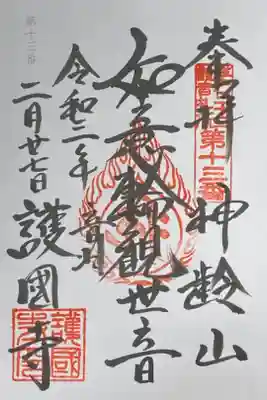 奉拝 神齢山
第十三番
如意輪觀世音
令和二年 音羽
二月廿七日 護國寺
第十三番
護國